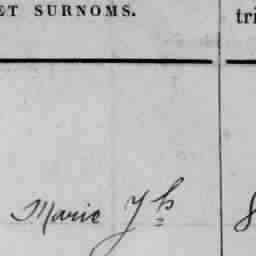 ET SURNOMS.
tri
Marie Jh